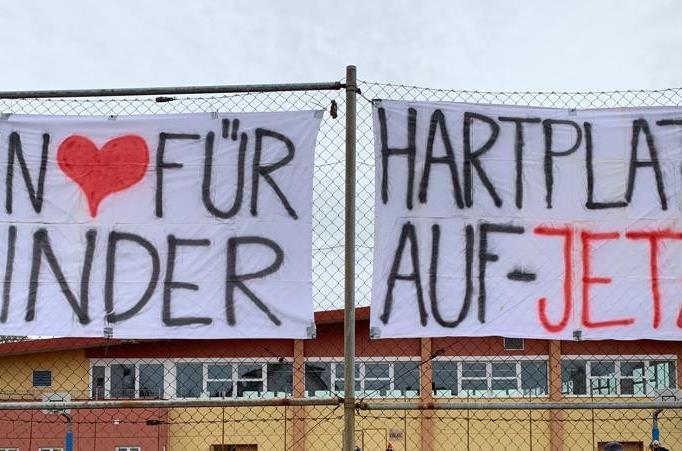 N ❤ FÜR
INDER
HARTPLAT
AUF-JETZ